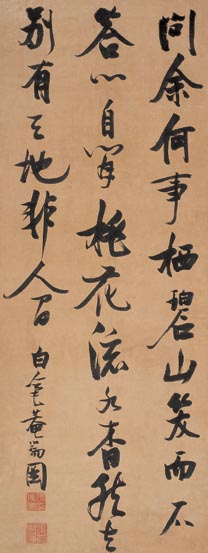 問余何事栖碧山笑而不
答心自閒桃花流水杳然去
別有天地非人間
白毫菴瑞圖